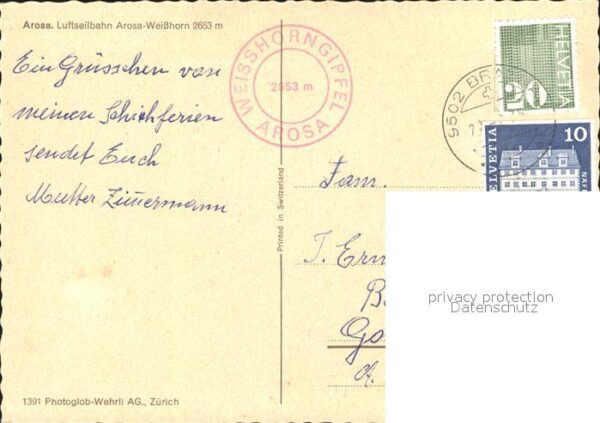 Arosa. Luftseilbahn Arosa-Weißhorn 2653 m
Ein Grüsschen von
meinen Schiehferien
sendet Euch
Mutter Zimmermann
WEISSHORNGIPFEL
2653 m
AROSA
Printed in Switzerland
9502 BRA
HELVETIA
20
HELVETIA
10
NÄF
Fam.
T. Ern
B
Go
a.
privacy protection
Datenschutz
1391 Photoglob-Wehrli AG., Zürich